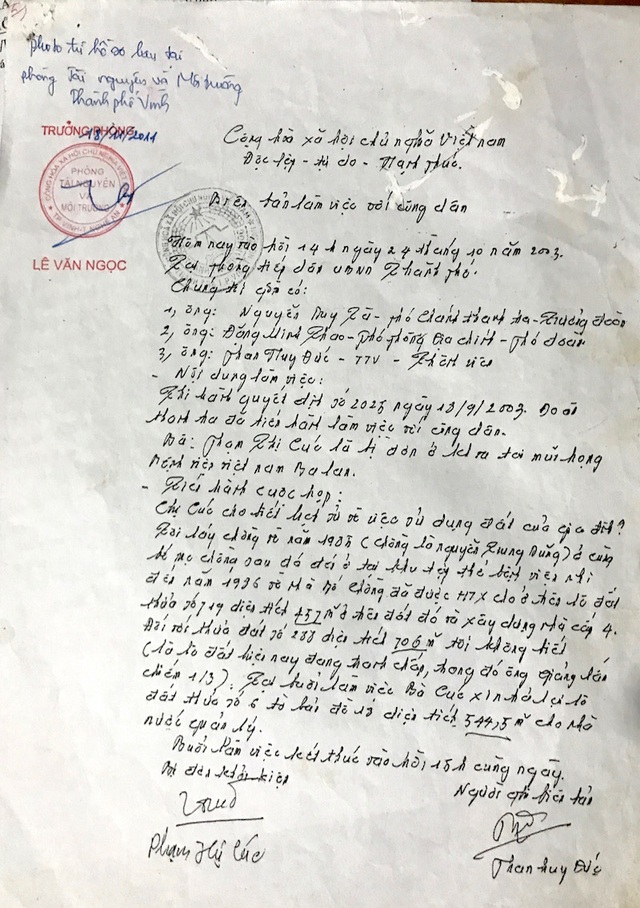 photo từ hồ sơ lưu tại
phòng Tài nguyên và Môi trường
Thành phố Vinh
TRƯỞNG PHÒNG
18/11/2011
PHÒNG
TÀI NGUYÊN
VÀ
MÔI TRƯỜNG
LÊ VĂN NGỌC
Cộng hòa xã hội chủ nghĩa Việt nam
Độc lập - tự do - Hạnh phúc.
Biên bản làm việc với công dân
Hôm nay vào hồi 14h ngày 24 tháng 10 năm 2003.
Tại phòng tiếp dân UBND Thành phố.
Chúng tôi gồm có:
1, ông: Nguyễn Duy - Phó Chánh thanh tra - Trưởng đoàn
2, ông: Đặng Minh Thao - Phó phòng Địa chính - Phó đoàn
3, ông: Phan Huy Đức - TTV - Thành viên
- Nội dung làm việc:
Thi hành quyết định số 2025 ngày 13/9/2003. Đoàn
thanh tra đã tiến hành làm việc với công dân.
Bà: Phạm Thị Cúc là bị đơn ở khoa tai mũi họng
Bệnh viện việt nam Ba lan.
- Tiến hành cuộc họp:
Chị Cúc cho biết lịch sử về việc sử dụng đất của gia đình?
Tôi lấy chồng về năm 1985 (chồng là nguyễn Trung Dũng) ở cùng
bố mẹ chồng sau đó dời ở tại khu tập thể bệnh viện nhi
đến năm 1996 về nhà bố chồng đã được HTX cho ở trên lô đất
thửa số 719 diện tích 457 m² ở trên đất đó và xây dựng nhà cấp 4.
Đối với thửa đất số 288 diện tích 706 m² tôi không biết
(là lô đất hiện nay đang tranh chấp, trong đó ông Giảng lấn
chiếm 1/3). Tại buổi làm việc Bà Cúc xin trả lại lô
đất thửa số 6 tờ bản đồ 13 diện tích 544,5 m² cho nhà
nước quản lý.
Buổi làm việc kết thúc vào hồi 15h cùng ngày.
Bị đơn khởi kiện
Người ghi biên bản
Phạm Thị Cúc
Phan huy Đức